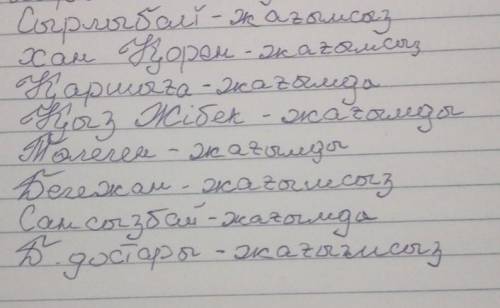 Сырлыбай - жағымсыз
хан Қорен - жағымсыз
Қаршыға - жағымда
Қыз Жібек - жағымды
Төлеген - жағымды
Бегежан - жағымсыз
Сансызбай - жағымда
Б. достары - жағымсыз